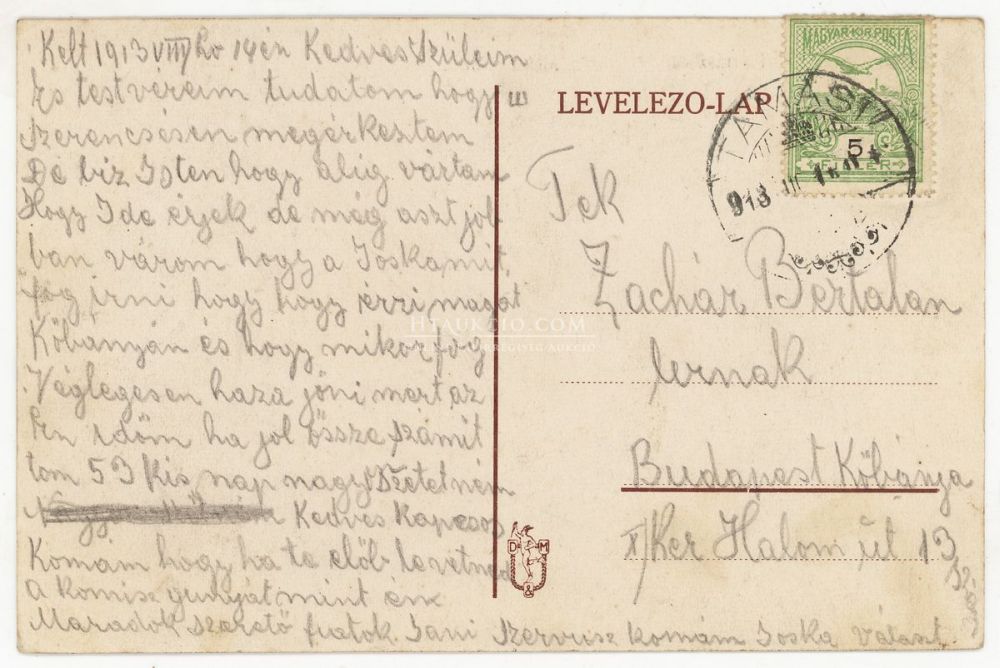 Kelt 1913 VIII hó 14én Kedves Szüleim
És testvéreim tudatom hogy
szerencsésen megérkeztem
De biz Isten hogy alig vártam
Hogy Ide érjek de még aszt job
ban várom hogy a Joska mit
fog irni hogy hogy érzi magát
Köbányán és hogy mikor fog
Véglegesen haza jöni mert az
Én Idöm ha jol össze számit
tom 53 kis nap nagy
Kedves Kapcsos
Komám hogy ha te elöb levetned
A komisz gunyát mint én
Maradok szerető fiatok Jani Szervusz komám Joska Választ
LEVELEZO-LAP
MAGYAR KIR. POSTA
5
FILLER
TAMÁSI
913
Tek
Zachár Bertalan
urnak
Budapest Köbánya
X/Ker Halom út 13
D M
&
HTAUKCIO.COM